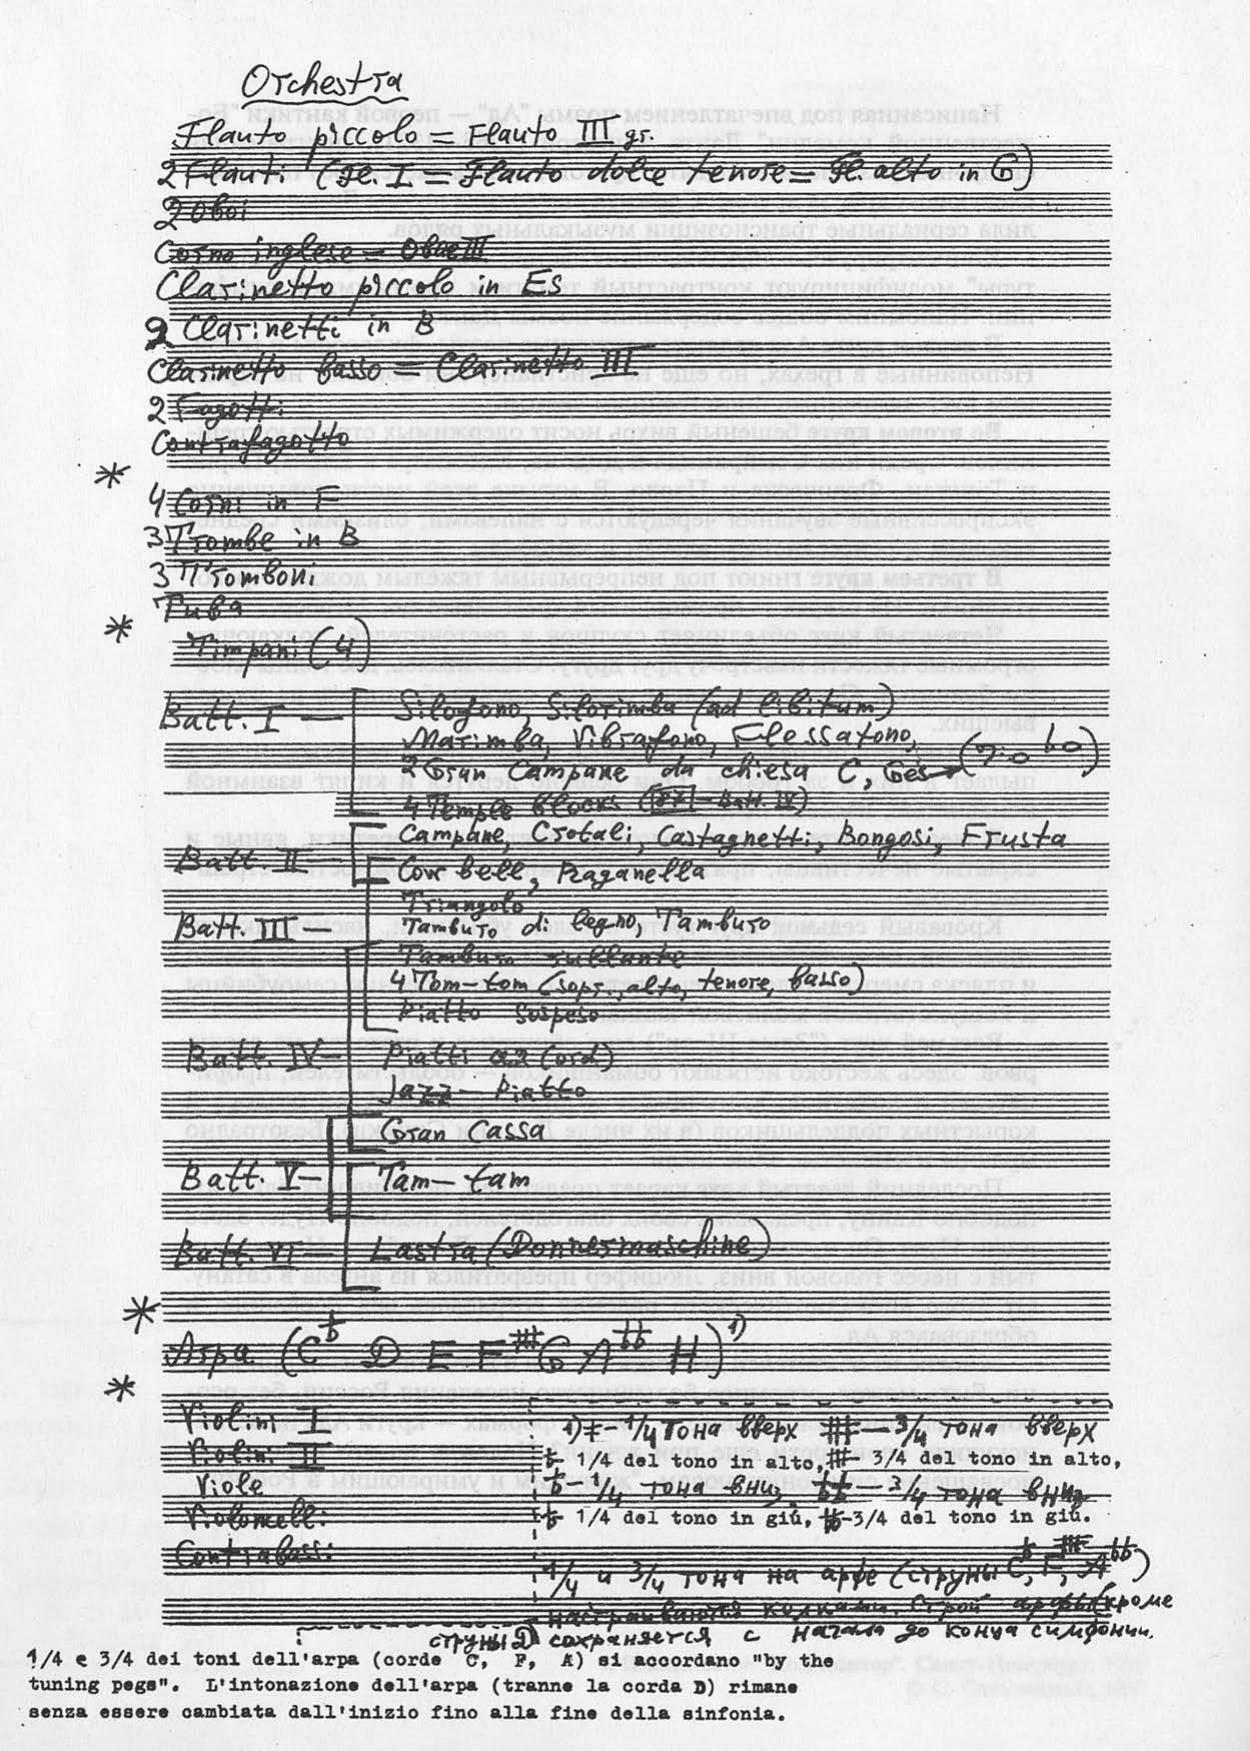 Orchestra
Flauto piccolo = Flauto III gr.
2 Flauti (Fl. I = Flauto dolce tenore = Fl. alto in G)
2 Oboi
Corno inglese = Oboe III
Clarinetto piccolo in Es
2 Clarinetti in B
Clarinetto basso = Clarinetto III
2 Fagotti
Contrafagotto
*
4 Corni in F
3 Trombe in B
3 Tromboni
Tuba
*
Timpani (4)
Batt. I — Silofono, Silorimba (ad libitum)
Marimba, Vibrafono, Flessatono,
2 Gran Campane da chiesa C, Ges
4 Temple blocks (37 — Batt. IV)
Campane, Crotali, Castagnetti, Bongosi, Frusta
Batt. II — Cow bell, Raganella
Triangolo
Batt. III Tamburo di legno, Tamburo
Tamburo rullante
4 Tom-tom (sopr., alto, tenore, basso)
Piatto sospeso
Batt. IV — Piatti a2 (ord)
Jazz — piatto
Gran Cassa
Batt. V — Tam-tam
Batt. VI — Lastra (Donnermaschine)
*
Arpa (C D E F G A H) 1)
*
Violini I
Violini II
Viole
Violoncelli
Contrabassi
1) - 1/4 тона вверх — 3/4 тона вверх
1/4 del tono in alto, 3/4 del tono in alto,
- 1/4 тона вниз — 3/4 тона вниз
1/4 del tono in giú, -3/4 del tono in giú.
1/4 и 3/4 тона на арфе (струны C, F, A)
настраиваются колками. Строй арфы (кроме
струны D) сохраняется с начала до конца симфонии.
1/4 e 3/4 dei toni dell'arpa (corde C, F, A) si accordano "by the
tuning pegs". L'intonazione dell'arpa (tranne la corda D) rimane
senza essere cambiata dall'inizio fino alla fine della sinfonia.